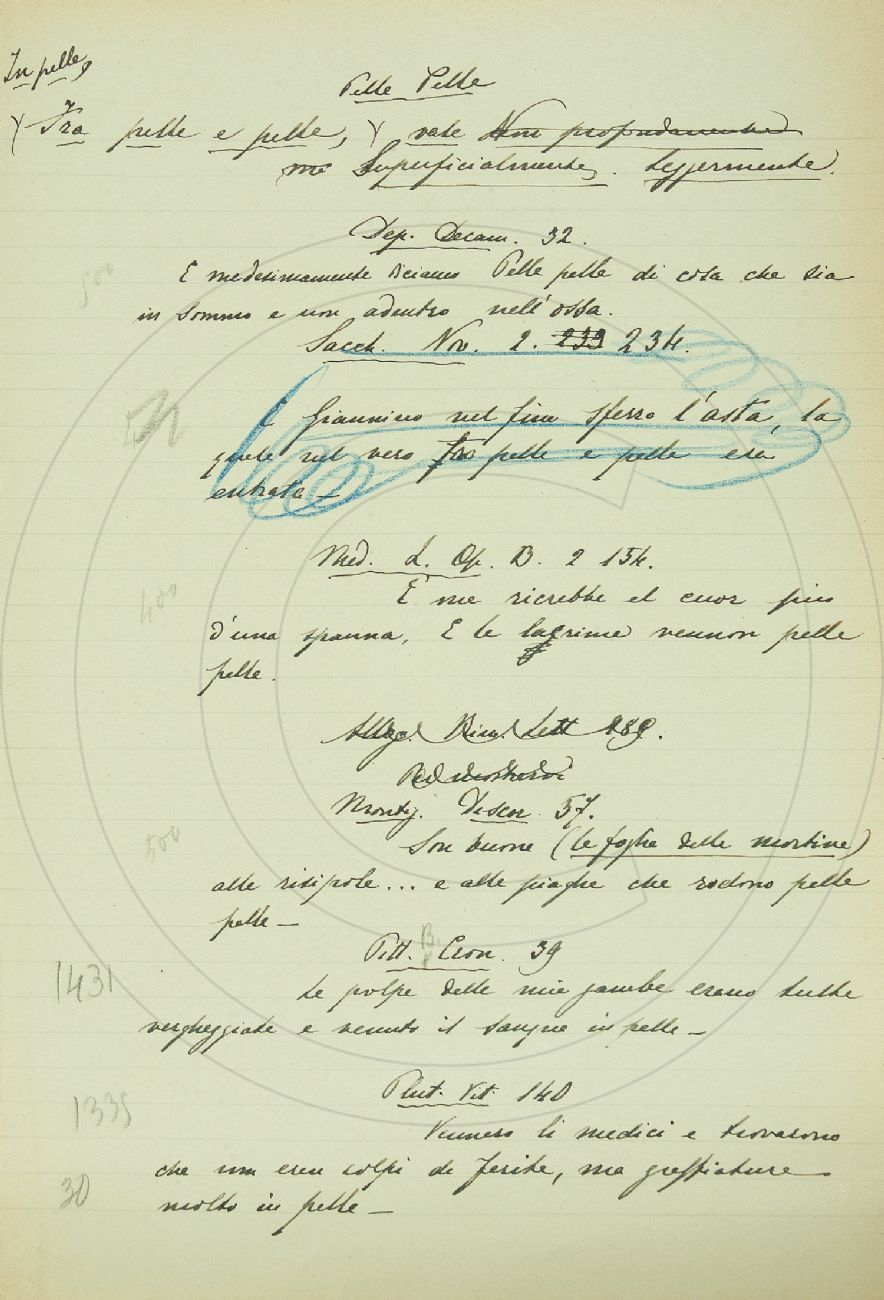 In pelle,
Pelle Pelle
Tra pelle e pelle, vale Non profondamente
ma Superficialmente, leggermente.
Dep. Decam. 32.
E medesimamente diciamo Pelle pelle di cosa che sia
in sommo e non adentro nell'ossa.
Sacch. Nov. 2. 233 234.
E Giannino nel fine sferro l'asta, la
quale nel vero fra pelle e pelle era
entrata —
Med. L. Op. B. 2 154.
E me ricrebbe el cuor piu
d'una spanna, E le lagrime vennon pelle
pelle.
Alleg. Rim. Lett 289.
Montig. Diosc. 57.
Son buone (le foglie delle mortine)
alle risipole... e alle piaghe che rodono pelle
pelle —
Pitt. B. Cron. 39
Le polpe delle mie gambe erano tutte
vergheggiate e venuto il sangue in pelle —
Plut. Vit. 140
Vennero li medici e trovarono
che non eran colpi de ferite, ma graffiature
molto in pelle —
500
400
500
1431
1335
30